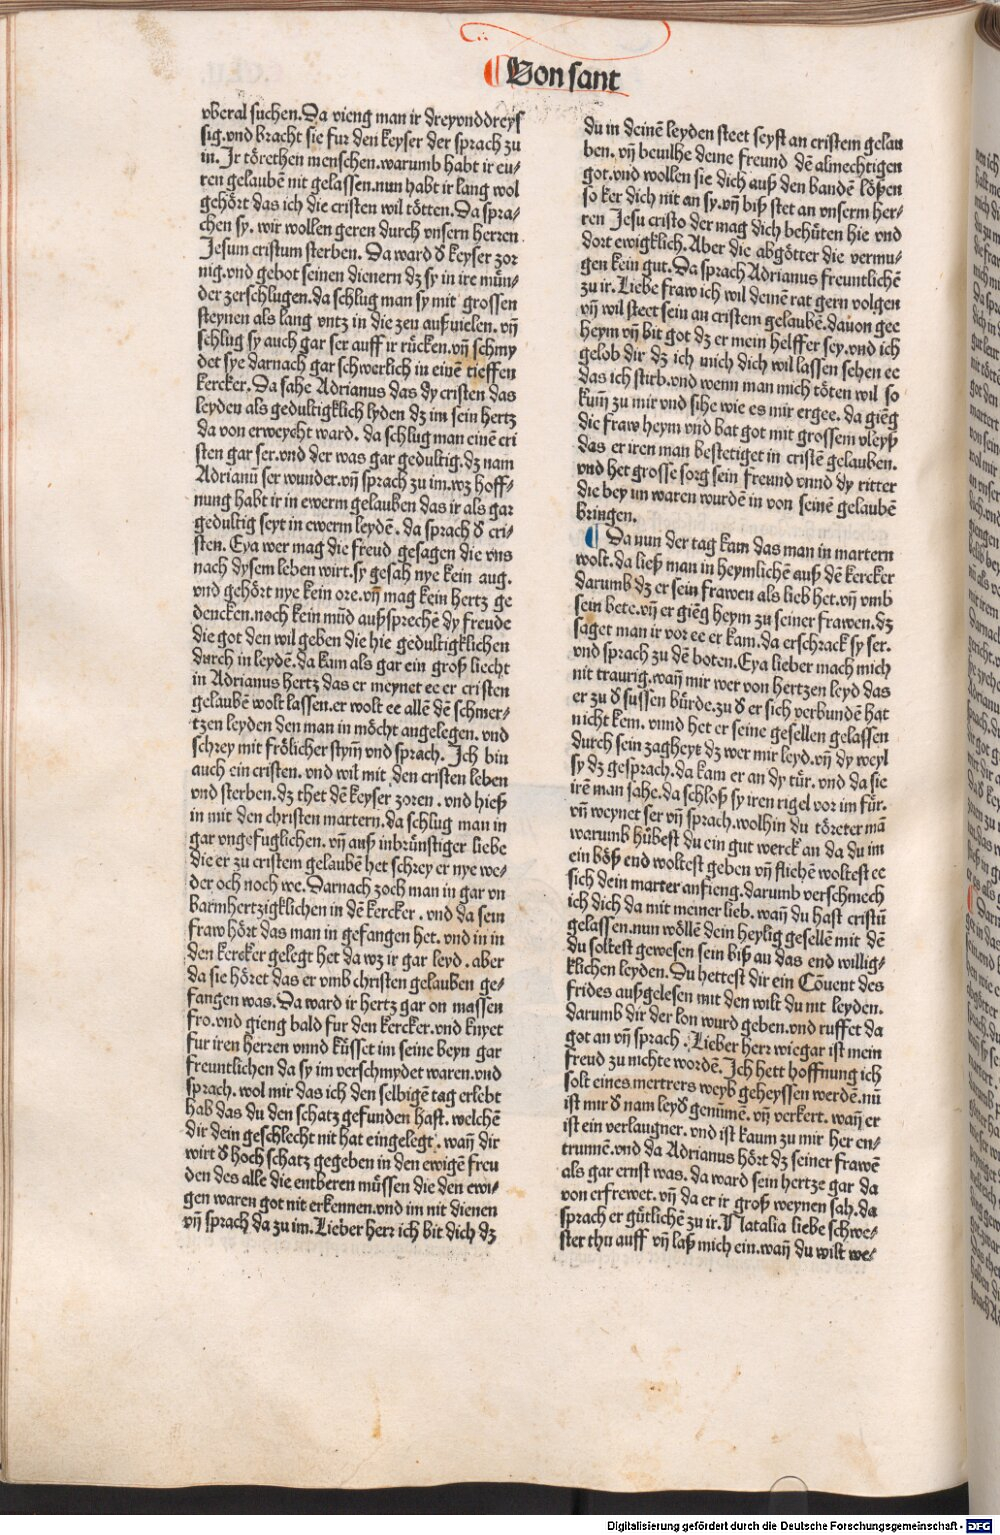 ¶ Von sant
vberal suchen. Da vieng man ir dreyvnddreys
sig. vnd bracht sie fur den keyser der sprach zu
in. Ir törethen menschen. warumb habt ir eu⸗
ren gelaubē nit gelassen. nun habt ir lang wol
gehört das ich die cristen wil tötten. Da spra⸗
chen sy. wir wollen geren durch vnsern herren
Jesum cristum sterben. Da ward d̕ keyser zor
nig. vnd gebot seinen dienern dz sy in ire mün⸗
der zerschlugen. da schlug man sy mit grossen
steynen als lang vntz in die zen auß vielen. vn̄
schlug sy auch gar ser auff ir rücken. vn̄ schmy
det sye darnach gar schwerlich in einē tieffen
kercker. Da sahe Adrianus das dy cristen das
leyden als gedultigklich lyden dz im sein hertz
da von erweycht ward. da schlug man einē cri
sten gar ser. vnd der was gar gedultig. dz nam
Adrianū ser wunder. vn̄ sprach zu im. wz hoff⸗
nung habt ir in ewerm gelauben das ir als gar
gedultig seyt in ewerm leydē. da sprach d̕ cri⸗
sten. Eya wer mag die freud gesagen die vns
nach dysem leben wirt. sy gesah nye kein aug.
vnd gehört nye kein ore. vn̄ mag kein hertz ge
dencken. noch kein mūd außsprechē dy freude
die got den wil geben die hie gedultigklichen
durch in leydē. da kum als gar ein groß liecht
in Adrianus hertz das er meynet ee er cristen
gelaubē wolt lassen. er wolt ee allē dē schmer⸗
tzen leyden den man in möcht angelegen. vnd
schrey mit frölicher stym̄ vnd sprach. Ich bin
auch ein cristen. vnd wil mit den cristen leben
vnd sterben. dz thet dē keyser zoren. vnd hieß
in mit den christen martern. da schlug man in
gar vngefuglichen. vn̄ auß inbrünstiger liebe
die er zu cristem gelaubē het schrey er nye we⸗
der och noch we. Darnach zoch man in gar vn
barmhertzigklichen in dē kercker. vnd da sein
fraw hört das man in gefangen het. vnd in in
den kercker gelegt het da wz ir gar leyd. aber
da sie höret das er vmb christen gelauben ge⸗
fangen was. Da ward ir hertz gar on massen
fro. vnd gieng bald fur den kercker. vnd knyet
fur iren herren vnnd küsset im seine beyn gar
freuntlichen da sy im verschmydet waren. vnd
sprach. wol mir das ich den selbigē tag erlebt
hab das du den schatz gefunden hast. welchē
dir dein geschlecht nit hat eingelegt. wan̄ dir
wirt d̕ hoch schatz gegeben in den ewigē freu
den des alle die entberen müssen die den ewi⸗
gen waren got nit erkennen. vnd im nit dienen
vn̄ sprach da zu im. Lieber herr ich bit dich dz
du in deinē leyden steet seyst an cristem gelau
ben. vn̄ beuilhe deine freund dē almechtigen
got. vnd wollen sie dich auß den bandē lößen
so ker dich nit an sy. vn̄ biß stet an vnserm her⸗
ren Jesu cristo der mag dich behüten hie vnd
dort ewigklich. Aber die abgötter die vermu⸗
gen kein gut. Da sprach Adrianus freuntlichē
zu ir. Liebe fraw ich wil deinē rat gern volgen
vn̄ wil steet sein an cristem gelaubē. dauon gee
heym vn̄ bit got dz er mein helffer sey. vnd ich
gelob dir dz ich mich dich wil lassen sehen ee
das ich stirb. vnd wenn man mich töten wil so
kum̄ zu mir vnd sihe wie es mir ergee. da giēg
die fraw heym vnd bat got mit grossem vleyß
das er iren man bestetiget in cristē gelauben.
vnd het grosse sorg sein freund vnnd dy ritter
die bey im waren wurdē in von seinē gelaubē
bringen.
¶ Da nun der tag kam das man in martern
wolt. da ließ man in heymlichē auß dē kercker
darumb dz er sein frawen als lieb het. vn̄ vmb
sein bete. vn̄ er giēg heym zu seiner frawen. dz
saget man ir vor ee er kam. da erschrack sy ser.
vnd sprach zu dē boten. Eya lieber mach mich
nit traurig. wan̄ mir wer von hertzen leyd das
er zu d̕ sussen bürde. zu d̕ er sich verbundē hat
nicht kem. vnnd het er seine gesellen gelassen
durch sein zagheyt dz wer mir leyd. vn̄ dy weyl
sy dz gesprach. da kam er an dy tür. vnd da sie
irē man sahe. da schloß sy iren rigel vor im für.
vn̄ weynet ser vn̄ sprach. wolhin du töreter mā
warumb hübest du ein gut werck an da du im
ein böß end woltest geben vn̄ fliehē woltest ee
sich dein marter anfieng. darumb verschmech
ich dich da mit meiner lieb. wan̄ du hast cristū
gelassen. nun wöllē dein heylig gesellē mit dē
du soltest gewesen sein biß an das end willig⸗
klichen leyden. Du hettest dir ein Cōuent des
frides außgelesen mit den wilt du nit leyden.
darumb dir der lon wurd geben. vnd ruffet da
got an vn̄ sprach. Lieber herr wie gar ist mein
freud zu nichte wordē. Ich hett hoffnung ich
solt eines mertrers weyb geheyssen werdē. nū
ist mir d̕ nam leyd̕ genūmē. vn̄ verkert. wan̄ er
ist ein verlaugner. vnd ist kaum zu mir her en⸗
trunnē. vnd da Adrianus hört dz seiner frawē
als gar ernst was. da ward sein hertze gar da
von erfrewet. vn̄ da er ir groß weynen sah. da
sprach er gütlichē zu ir. Natalia liebe schwe⸗
ster thu auff vn̄ laß mich ein. wan̄ du wilt we⸗
Digitalisierung gefördert durch die Deutsche Forschungsgemeinschaft - DFG